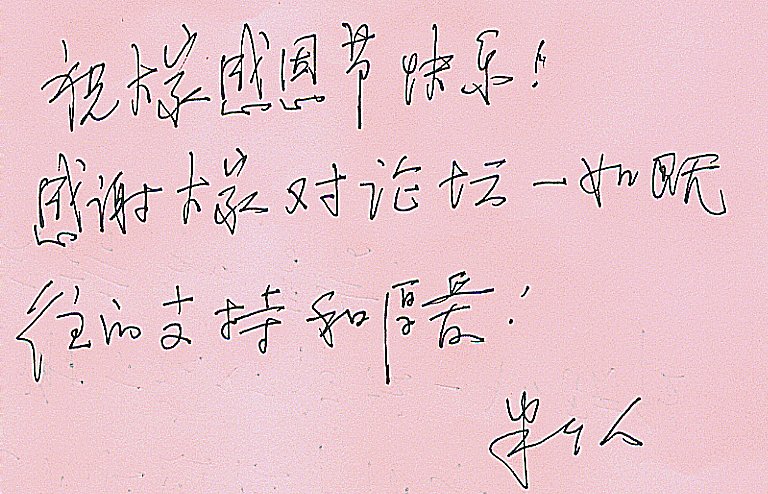 祝大家感恩节快乐!
感谢大家对论坛一如既
往的支持和厚爱!
半个人